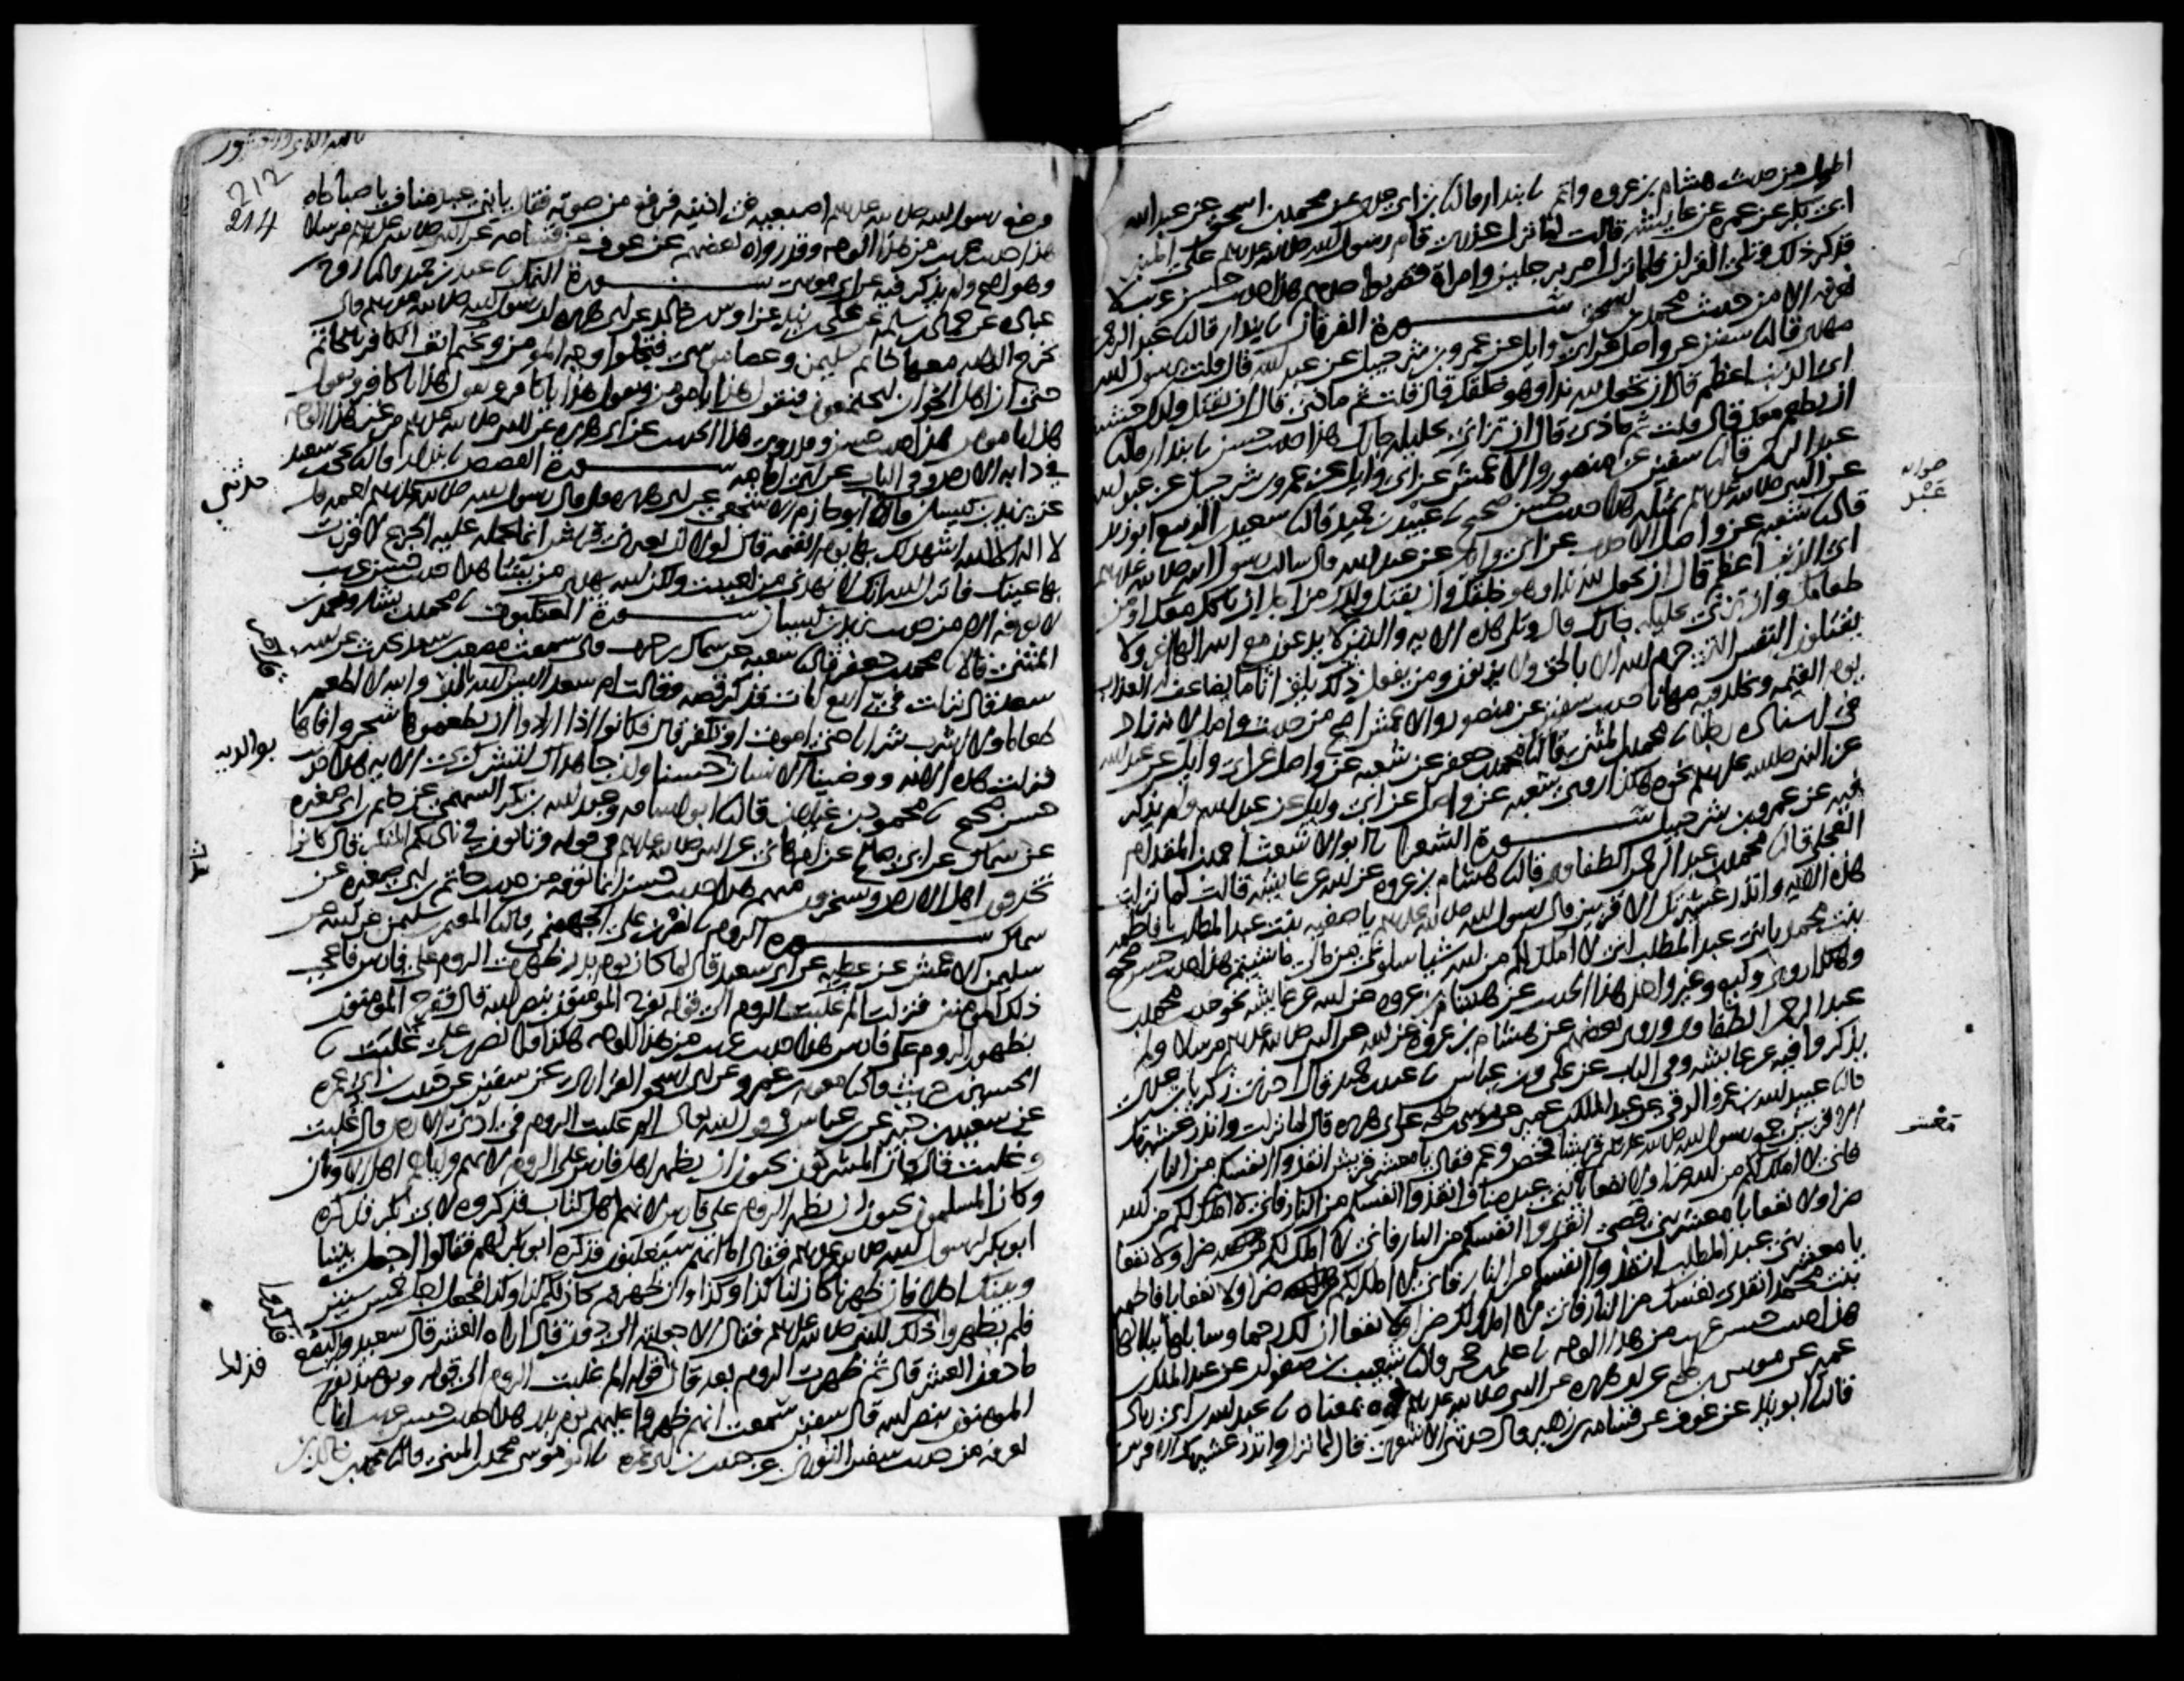 اطول من حديث هشام بن عروة واتم ثنا بندار قال ثنا ابن ابي عدي عن محمد بن اسحق عن عبد الله
ابن ابي بكر عن عمرة عن عايشة قالت لما نزل عذري قام رسول الله صلى الله عليه وسلم على المنبر
فذكر ذلك وتلى القران فلما نزل امر برجلين وامراة فضربوا حدهم هذا حديث حسن غريب لا
نعرفه الا من حديث محمد بن اسحق سورة الفرقان ثنا بندار قال ثنا عبد الرحمن
مهدي قال ثنا سفين عن واصل عن ابي وايل عن عمرو بن شرحبيل عن عبد الله قال قلت يا رسول الله
اي الذنب اعظم قال ان تجعل لله ندا وهو خلقك قال قلت ثم ماذا قال ان تقتل ولدك خشية
ان يطعم معك قال قلت ثم ماذا قال ان تزاني بحليلة جارك هذا حديث حسن ثنا بندار قال ثنا
عبد الرحمن قال ثنا سفين عن منصور والاعمش عن ابي وايل عن عمرو بن شرحبيل عن عبد الله
عن النبي صلى الله عليه وسلم بمثله هذا حديث حسن صحيح ثنا عبد بن حميد قال ثنا سعيد بن الربيع ابو زيد
قال ثنا شعبة عن واصل الاحدب عن ابي وايل عن عبد الله قال سالت رسول الله صلى الله عليه وسلم
اي الذنب اعظم قال ان تجعل لله ندا وهو خلقك وان تقتل ولدك من اجل ان ياكل معك او من
طعامك وان تزني بحليلة جارك قال وتلى هذه الاية والذين لا يدعون مع الله الها اخر ولا
يقتلون النفس التي حرم الله الا بالحق ولا يزنون ومن يفعل ذلك يلق اثاما يضاعف له العذاب
يوم القيمة ويخلد فيه مهانا حديث سفين عن منصور والاعمش اصح من حديث واصل لانه زاد
في اسناده رجلا ثنا محمد بن المثنى قال ثنا محمد بن جعفر عن شعبة عن واصل عن ابي وايل عن عبد الله
عن النبي صلى الله عليه وسلم نحوه هكذا روى شعبة عن واصل عن ابي وايل عن عبد الله ولم يذكر
فيه عن عمرو بن شرحبيل سورة الشعرا ثنا ابو الاشعث احمد بن المقدام
العجلي قال ثنا محمد بن عبد الرحمن الطفاوي قال ثنا هشام بن عروة عن ابيه عن عايشة قالت لما نزلت
هذه الاية وانذر عشيرتك الاقربين قال رسول الله صلى الله عليه وسلم يا صفية بنت عبد المطلب يا فاطمة
بنت محمد يا بني عبد المطلب اني لا املك لكم من الله شيا سلوني من مالي ما شيتم هذا حديث حسن صحيح
وهكذا روى وكيع وغير واحد هذا الحديث عن هشام بن عروة عن ابيه عن عايشة نحو حديث محمد بن
عبد الرحمن الطفاوي وروى بعضهم عن هشام بن عروة عن ابيه عن النبي صلى الله عليه وسلم مرسلا ولم
يذكروا فيه عن عايشة وفي الباب عن علي وابن عباس ثنا عبد بن حميد قال اخبرني زكريا بن عدي
قال ثنا عبيد الله بن عمرو الرقي عن عبد الملك بن عمير عن موسى بن طلحة عن ابي هريرة قال لما نزلت وانذر عشيرتك
الاقربين جمع رسول الله صلى الله عليه وسلم قريشا فخص وعم فقال يا معشر قريش انقذوا انفسكم من النار
فاني لا املك لكم من الله ضرا ولا نفعا يا بني عبد مناف انقذوا انفسكم من النار فاني لا املك لكم من الله
ضرا ولا نفعا يا معشر بني قصي انقذوا انفسكم من النار فاني لا املك لكم ضرا ولا نفعا
يا معشر بني عبد المطلب انقذوا انفسكم من النار فاني لا املك لكم ضرا ولا نفعا يا فاطمة
بنت محمد انقذي نفسك من النار فاني لا املك لك ضرا ولا نفعا ان لك رحما وسابلها ببلالها
هذا حديث حسن غريب من هذا الوجه ثنا علي بن حجر قال ثنا شعيب بن صفوان عن عبد الملك بن
عمير عن موسى بن طلحة عن ابي هريرة عن النبي صلى الله عليه وسلم بمعناه ثنا عبد الله بن ابي زياد
قال ثنا ابو زيد عن عوف عن قسامة بن زهير قال حدثني الاشعري قال لما نزل وانذر عشيرتك الاقربين
معشر
212
214
وضع رسول الله صلى الله عليه وسلم اصبعيه في اذنيه فرفع من صوته فقال يا بني عبد مناف يا صباحاه
هذا حديث غريب من هذا الوجه وقد رواه بعضهم عن عوف عن قسامة عن النبي صلى الله عليه وسلم مرسلا
وهو اصح ولم يذكر فيه عن ابي موسى سورة النمل ثنا عبد بن حميد قال ثنا روح بن
عبادة عن حماد بن سلمة عن علي بن زيد عن اوس بن خالد عن ابي هريرة ان رسول الله صلى الله عليه وسلم قال
تخرج الدابة معها خاتم سليمن وعصا موسى فتجلوا وجه المومن وتختم انف الكافر بالخاتم
حتى ان اهل الخوان ليجتمعون فيقول هذا يا مومن ويقول هذا يا كافر ويقول هذا يا كافر ويقول
هذا يا مومن هذا حديث حسن وقد روي هذا الحديث عن ابي هريرة عن النبي صلى الله عليه وسلم من غير هذا الوجه
في دابة الارض وفي الباب عن ابي امامة سورة القصص ثنا بندار قال ثنا يحيى بن سعيد
عن يزيد بن كيسان قال ثنا ابو حازم الاشجعي عن ابي هريرة قال قال رسول الله صلى الله عليه وسلم لعمه قل
لا اله الا الله اشهد لك بها يوم القيمة قال لولا ان تعيرني قريش انما يحمله عليه الجزع لاقررت
بها عينك فانزل الله انك لا تهدي من احببت ولكن الله يهدي من يشا هذا حديث حسن غريب
لا نعرفه الا من حديث يزيد بن كيسان سورة العنكبوت ثنا محمد بن بشار ومحمد بن
المثنى قالا ثنا محمد بن جعفر قال ثنا شعبة عن سماك بن حرب قال سمعت مصعب بن سعد يحدث عن ابيه
سعد قال نزلت في اربع ايات فذكر قصة وقالت ام سعد اليس الله امر بالبر والله لا اطعم
طعاما ولا اشرب شرابا حتى اموت او تكفر قال فكانوا اذا ارادوا ان يطعموها شجروا فاها
فنزلت هذه الاية ووصينا الانسان حسنا وان جاهداك لتشرك بي الاية هذا حديث
حسن صحيح ثنا محمود بن غيلان قال ثنا ابو اسامة وعبد الله بن بكر السهمي عن حاتم بن ابي صغيرة
عن سماك عن ابي صالح عن ام هاني عن النبي صلى الله عليه وسلم في قوله وتاتون في ناديكم المنكر قال كانوا
يخذفون اهل الارض ويسخرون منهم هذا حديث حسن انما نعرفه من حديث حاتم بن ابي صغيرة عن
سماك سورة الروم ثنا نصر بن علي الجهضمي قال ثنا المعتمر بن سليمن عن ابيه عن
سليمن الاعمش عن عطية عن ابي سعيد قال لما كان يوم بدر ظهرت الروم على فارس فاعجب
ذلك المومنين فنزلت الم غلبت الروم الى قوله يفرح المومنون بنصر الله قال ففرح المومنون
بظهور الروم على فارس هذا حديث غريب من هذا الوجه هكذا قرا نصر بن علي غلبت ثنا
الحسين بن حريث قال ثنا معوية بن عمرو عن ابي اسحق الفزاري عن سفين عن حبيب بن ابي عمرة
عن سعيد بن جبير عن ابن عباس في قول الله تعالى الم غلبت الروم في ادنى الارض قال غلبت
وغلبت قال كان المشركون يحبون ان يظهر اهل فارس على الروم لانهم واياهم اهل الاوثان
وكان المسلمون يحبون ان يظهر الروم على فارس لانهم اهل كتاب فذكروه لابي بكر فذكره
ابو بكر لرسول الله صلى الله عليه وسلم فقال اما انهم سيغلبون فذكره ابو بكر لهم فقالوا اجعل بيننا
وبينك اجلا فان ظهرنا كان لنا كذا وكذا وان ظهرتم كان لكم كذا وكذا فجعل اجل خمس سنين
فلم يظهروا فذكر ذلك للنبي صلى الله عليه وسلم فقال الا جعلته الى دون قال اراه العشر قال سعيد والبضع
ما دون العشر قال ثم ظهرت الروم بعد قال قوله الم غلبت الروم الى قوله ويومئذ يفرح
المومنون بنصر الله قال سفين سمعت انهم ظهروا عليهم يوم بدر هذا حديث حسن غريب انما
نعرفه من حديث سفين الثوري عن حبيب بن ابي عمرة ثنا ابو موسى محمد بن المثنى قال ثنا محمد بن خالد بن
حدثني
بوالديه